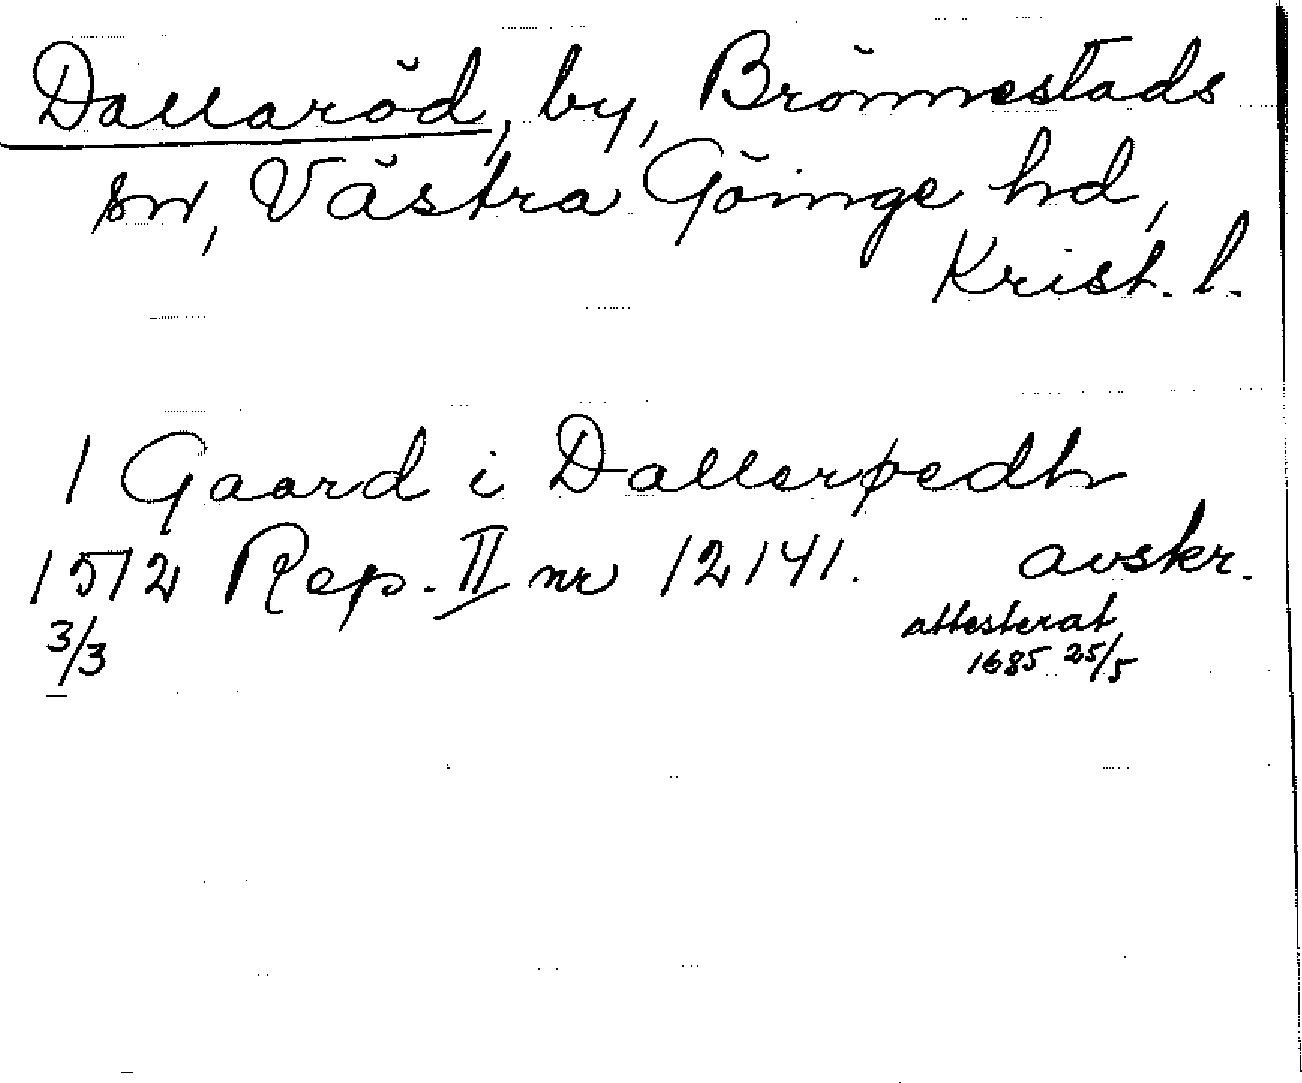 Dallaröd, by, Brönnestads
sn, Västra Göinge hd,
Krist. l.
1 Gaard i Dallerøedh
1512 Rep. II nr 12141. avskr.
3/3 attesterat
1685 25/5